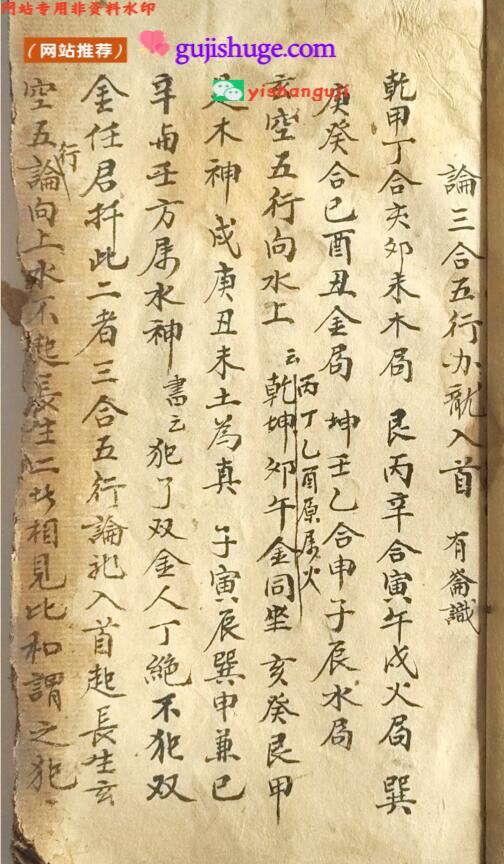 网站专用非资料水印
（网站推荐）
gujishuge.com
yishanguji
論三合五行办龍入首 有崙識
乾甲丁合亥卯未木局 艮丙辛合寅午戌火局 巽
庚癸合巳酉丑金局 坤壬乙合申子辰水局
玄空五行向水上 云 丙丁乙酉原属火 乾坤卯午金同坐 亥癸艮甲
木神 戌庚丑未土為真 子寅辰巽申兼巳
辛与壬方属水神 書云 犯了双金人丁絶 不犯双
金任君扦 此二者三合五行論龍入首起長生 玄
空五行論向上水不起長生 二者相見比和謂之犯